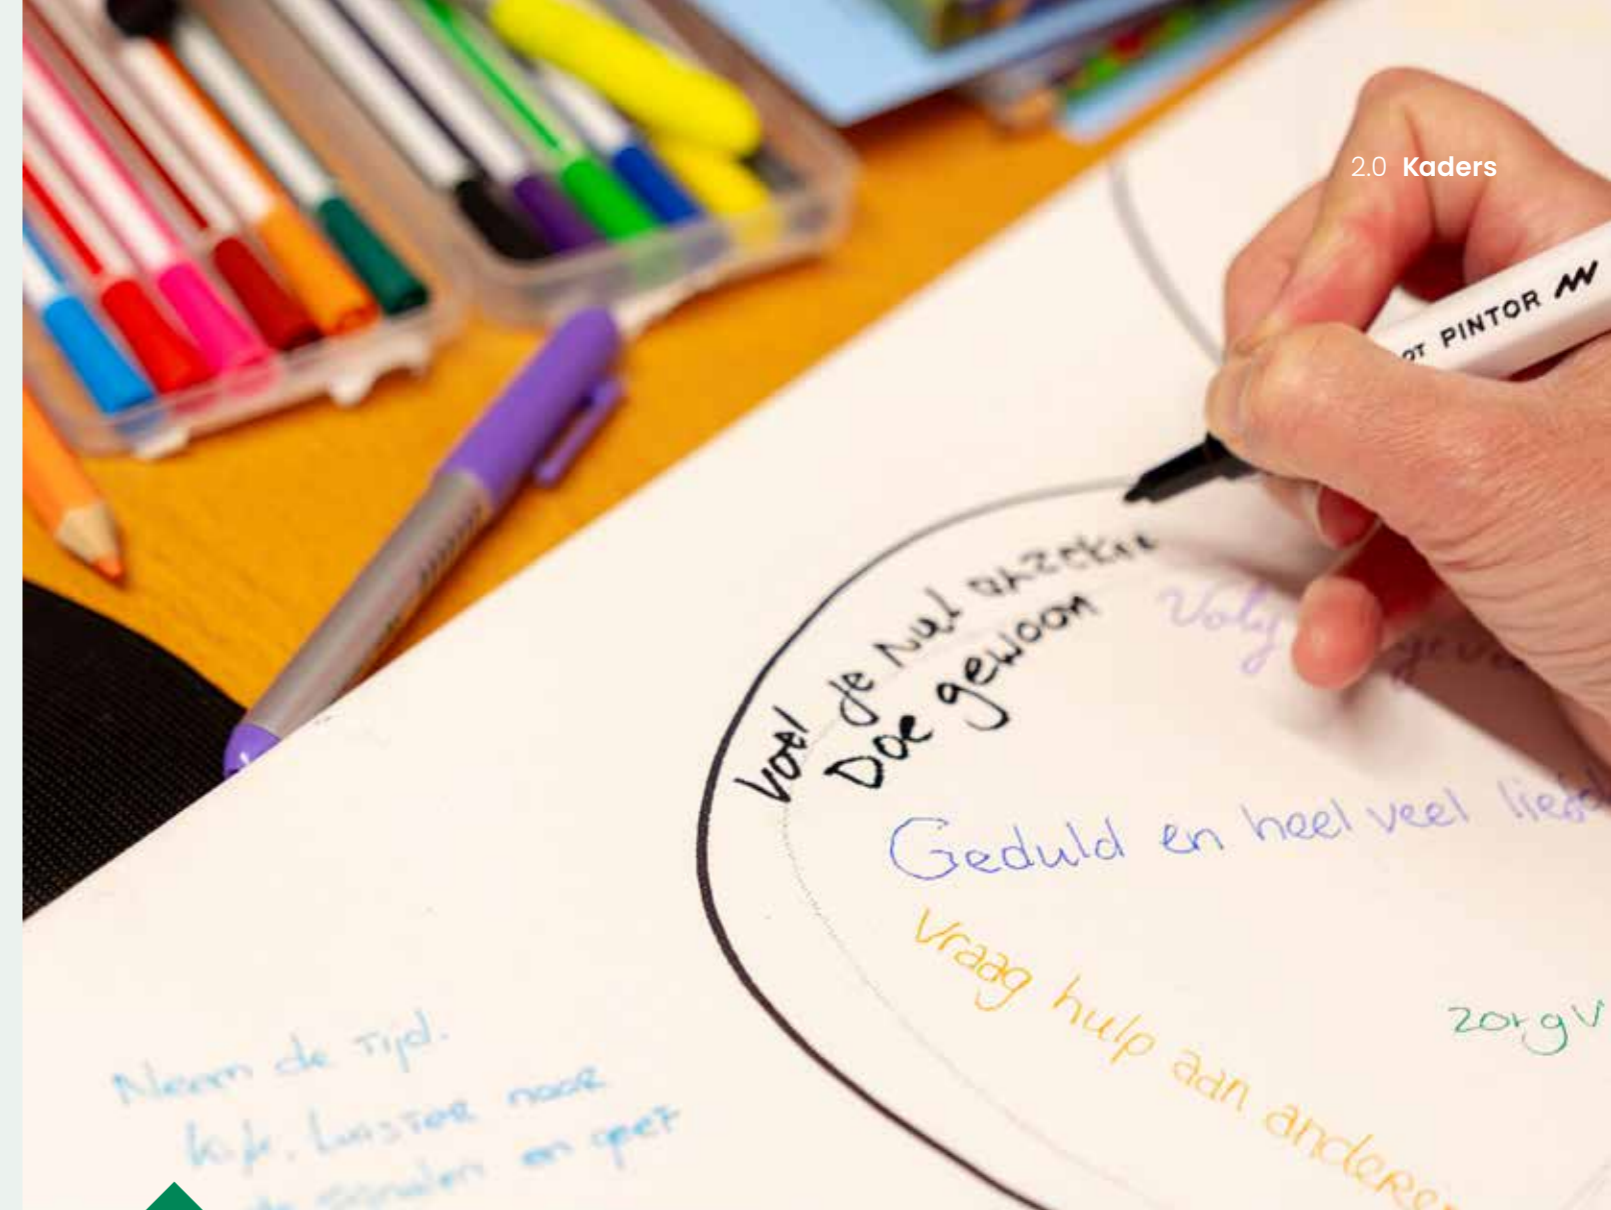 2.0 Kaders
PINTOR
Voel je niet onzeker
Doe gewoon
Volg
Geduld en heel veel liefd
Vraag hulp aan anderen
zorgv
Neem de Tijd.
kijk, luister naar
de signalen en geef